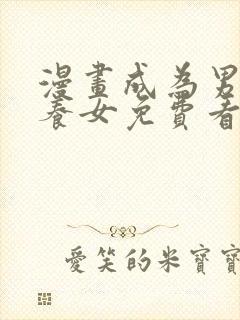 漫畫成為男
養女免費看
愛笑的米寶寶